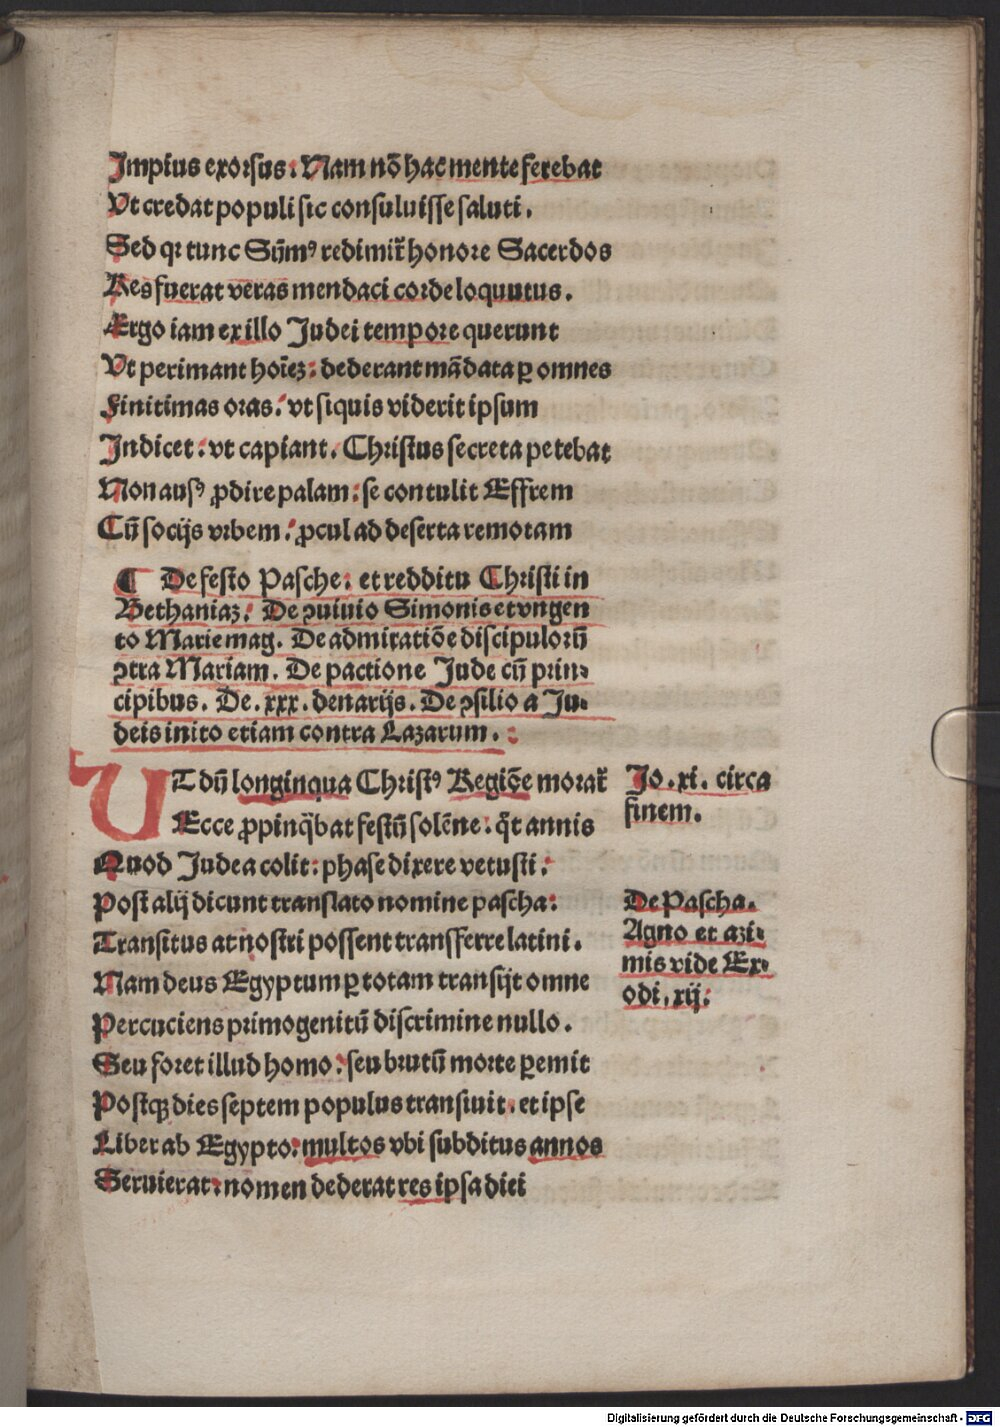 Impius exorsus: Nam nõ hac mente ferebat
Vt credat populi sic consuluisse saluti.
Sed qꝛ tunc Sũmꝰ redimit̃ honore Sacerdos
Res fuerat veras mendaci corde loquutus.
Ergo iam ex illo Judei tempore querunt
Vt perimant hoĩeꝫ: dederant mãdata ꝑ omnes
Finitimas oras: vt siquis viderit ipsum
Indicet: vt capiant. Christus secreta petebat
Non ausꝰ ꝓdire palam: se contulit Effrem
Cũ socijs vrbem: ꝓcul ad deserta remotam
¶ De festo Pasche: et redditu Christi in
Bethaniaꝫ: De ꝯuiuio Simonis et vngen
to Marie mag. De admiratiõe discipuloꝛũ
ꝯtra Mariam. De pactione Jude cũ prin⸗
cipibus. De .xxx. denarijs. De ꝯsilio a Ju⸗
deis inito etiam contra Lazarum.
UT dũ longinqua Christꝰ Regiõe morat̃
Ecce ꝓpinq̃bat festũ solẽne: q̃t annis
Quod Judea colit: phase dixere vetusti:
Post alij dicunt translato nomine pascha:
Transitus at nostri possent transferre latini.
Nam deus Egyptum ꝑ totam transijt omne
Percuciens primogenitũ discrimine nullo.
Seu foret illud homo: seu brutũ morte ꝑemit
Postqꝫ dies septem populus transiuit. et ipse
Liber ab Egypto: multos vbi subditus annos
Seruierat: nomen dederat res ipsa diei
Jo. xi. circa
finem.
De Pascha.
Agno et azi⸗
mis vide Ex⸗
odi. xij:
Digitalisierung gefördert durch die Deutsche Forschungsgemeinschaft - DFG